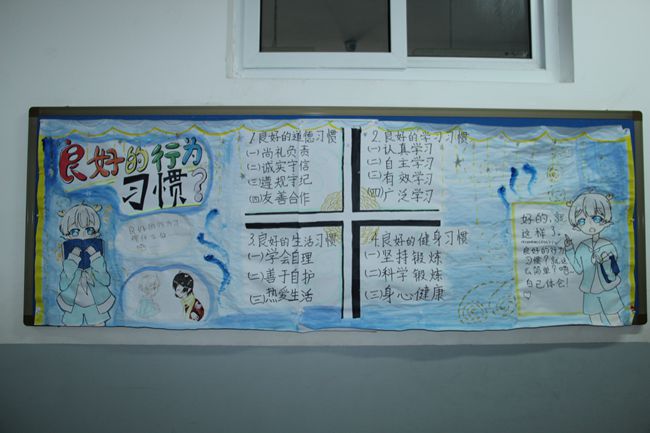 良好的行为
习惯?
良好的行为习
惯什么
吗
1.良好的道德习惯
(一)尚礼负责
(二)诚实守信
(三)遵规守纪
(四)友善合作
2.良好的学习习惯
(一)认真学习
(二)自主学习
(三)有效学习
(四)广泛学习
3.良好的生活习惯
(一)学会自理
(二)善于自护
(三)热爱生活
4.良好的健身习惯
(一)坚持锻炼
(二)科学锻炼
(三)身心健康
好的,就
这样了。
良好的行为
习惯?就这
么简单?吧
自己体会!